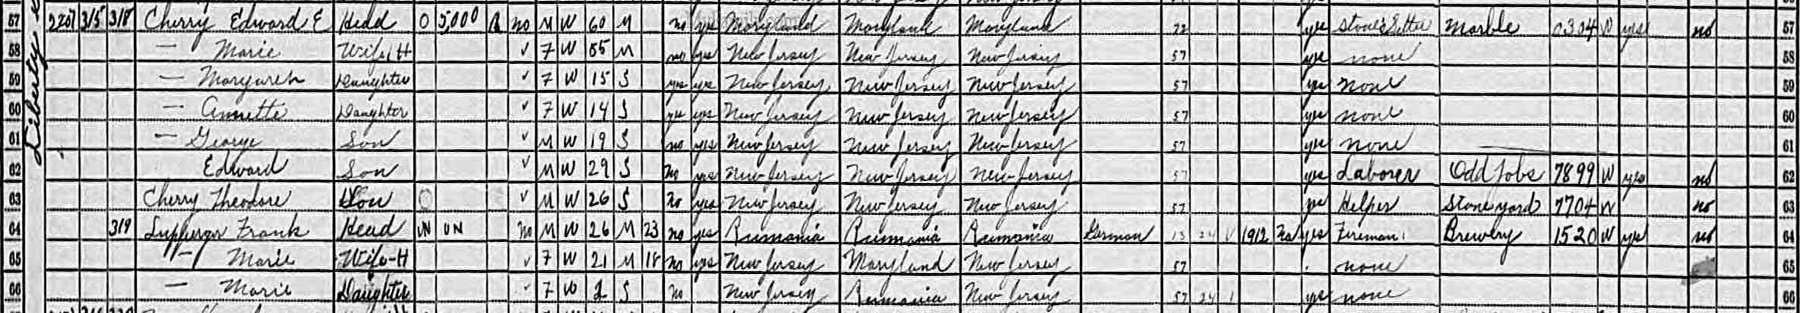 57 2207 315 318 Cherry Edward E Head O 5,000 R no M W 60 M no yes Maryland Maryland Maryland 72 yes Marble 0304 W yes no 57
58 — Marie Wife-H ✓ F W 55 M no yes New Jersey New Jersey New Jersey 57 yes none 58
59 — Daughter ✓ F W 15 S yes yes New Jersey New Jersey New Jersey 57 yes none 59
60 — Annette Daughter ✓ F W 14 S yes yes New Jersey New Jersey New Jersey 57 yes none 60
61 — George Son ✓ M W 19 S no yes New Jersey New Jersey New Jersey 57 yes none 61
62 Edward Son ✓ M W 29 S No yes New Jersey New Jersey New Jersey 57 yes Laborer Odd Jobs 7899 W yes no 62
63 Cherry Theodore Son ✓ M W 26 S No yes New Jersey New Jersey New Jersey 57 yes Helper Stoneyard 7704 W no 63
64 319 Frank Head UN UN No M W 26 M 23 no yes Rumania Rumania Rumania German 13 24 V 1912 Na yes Fireman Brewery 1520 W yes no 64
65 — Marie Wife-H ✓ F W 21 M 18 no yes New Jersey Maryland New Jersey 57 none 65
66 — Marie Daughter ✓ F W 2 S No New Jersey Rumania New Jersey 57 24 1 yes none 66